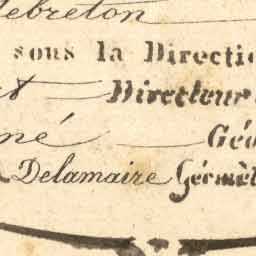 lebreton
sous la Directi
Directeur
né Géo
Delamaire Géomèt